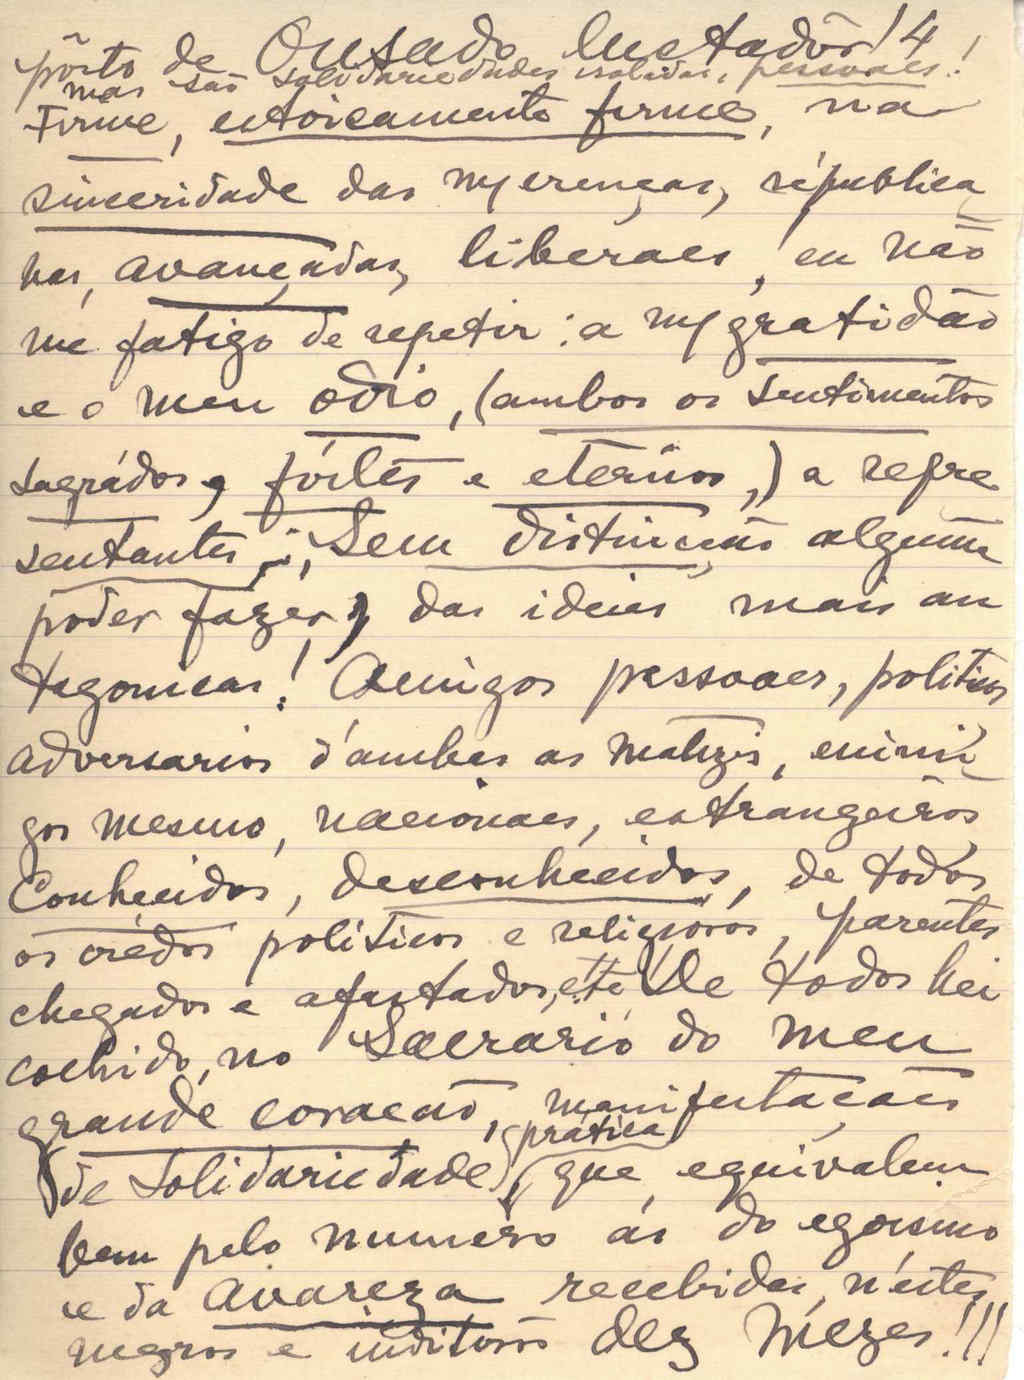 pôrto de Ousado luctadôr! 4
mas são solidariedades isoladas, pessoaes!
Firme, estoicamente firme, na
sinceridade das mas crenças, républica
nas, avançadas, liberaes, eu não
me fatigo de repetir: a ma gratidão
e o meu odio, (ambos os sentimentos
sagrádos, fórtes e eternos,) a repre
sentantes, sem distincção alguma
poder fazer, das ideias mais an
tagonicas! Amigos pessoaes, politicos
adversarios d'ambas as matizes, inimi
gos mesmo, nacionaes, estrangeiros
Conhecidos, desconhecidos, de todos
os crédos politicos e religiosos, parentes
chegados e afastados, etc. De todos hei
colhido, no Sacrario do meu
grande coração, manifestações
(prática)
(de Solidariedade) que equivalem
bem pelo numero ás do egoismo
e da avareza recebidas, n'estes
negros e inditosos dez mezes!!!